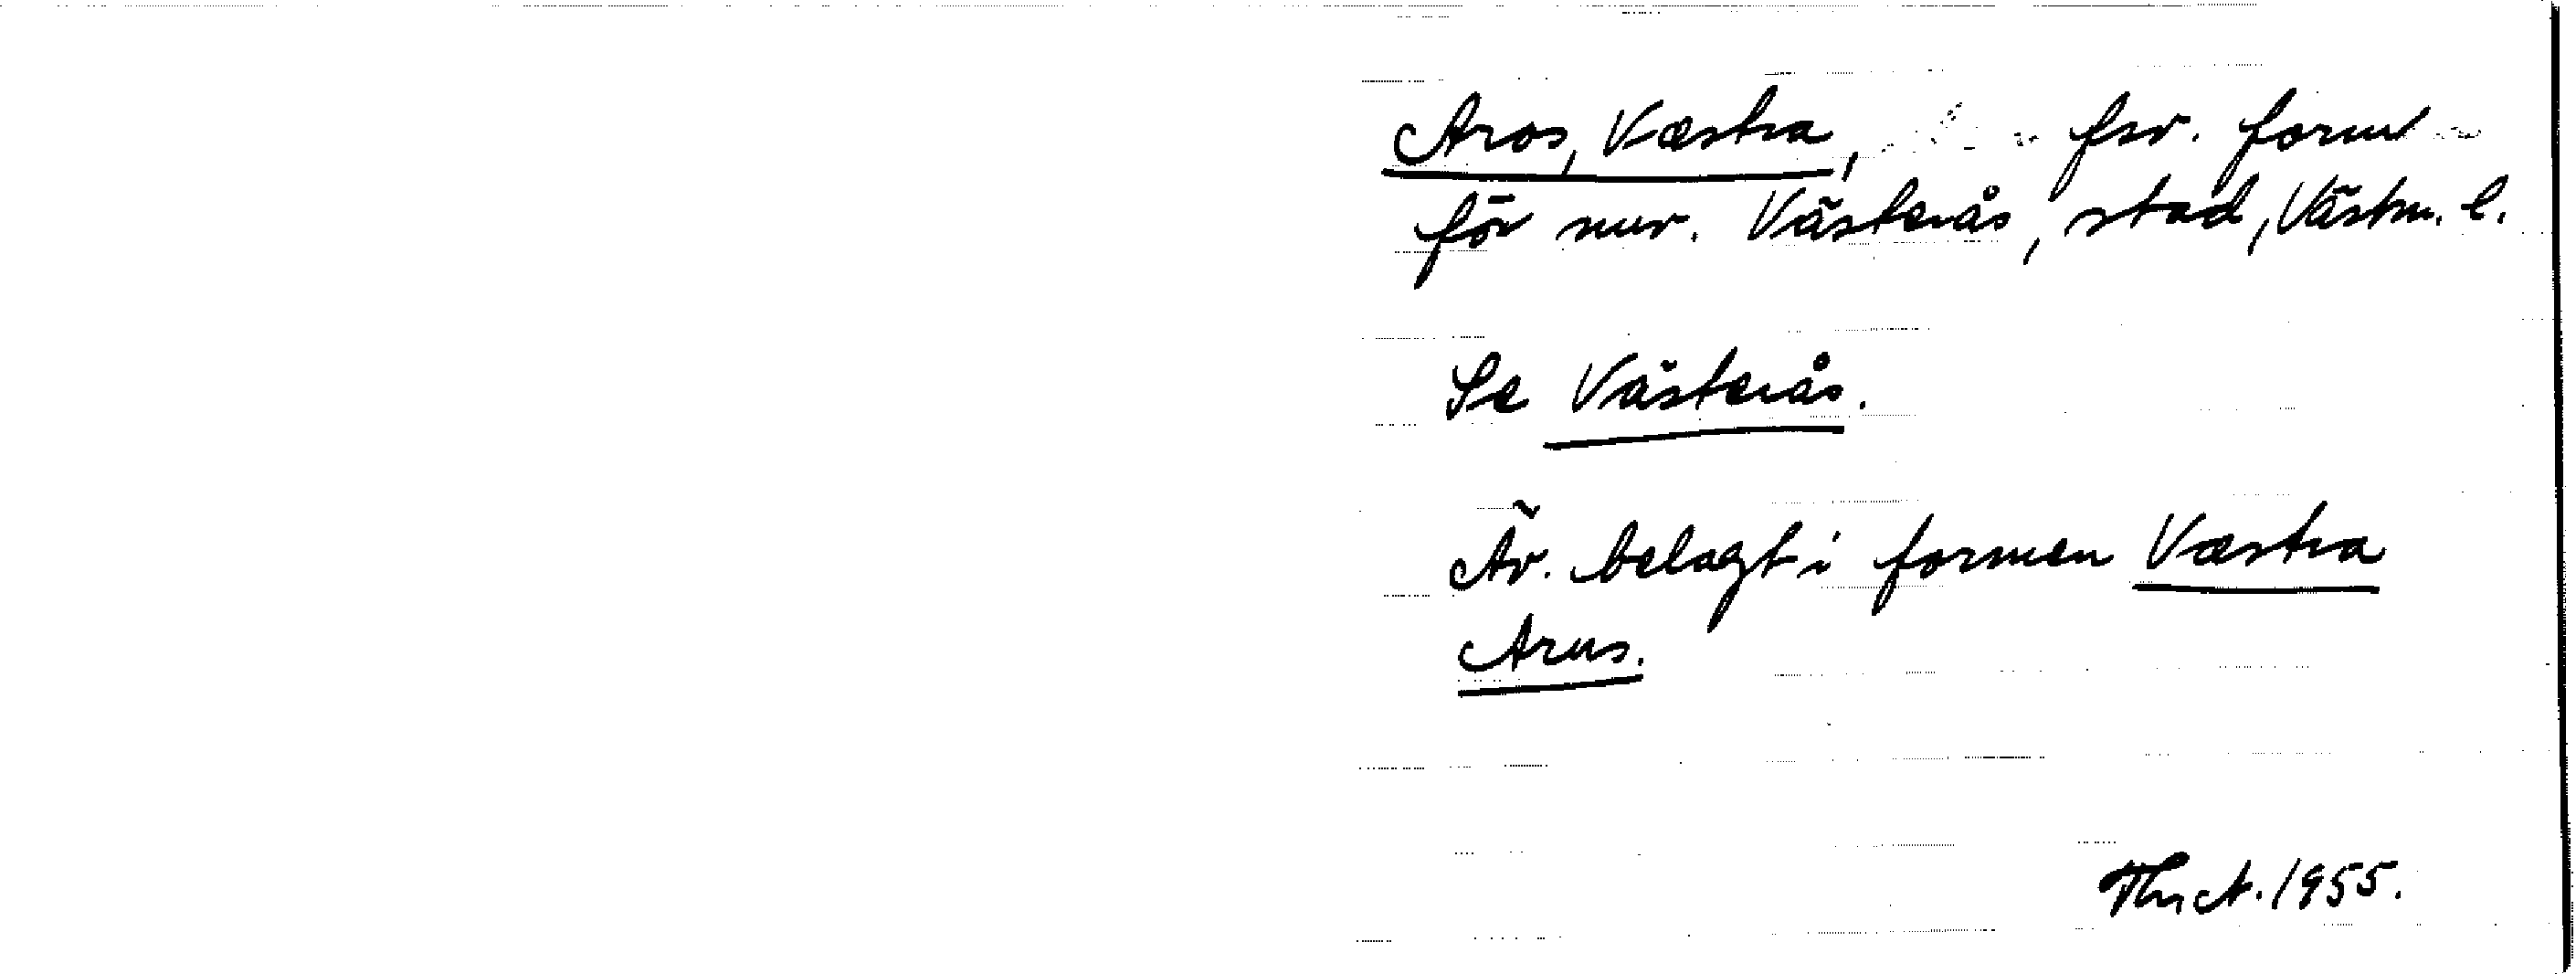 Aros, Væstra, fsv. form
för nuv. Västerås, stad, Västm. l.
Se Västerås.
Äv. belagt i formen Væstra
Arus.
1955.